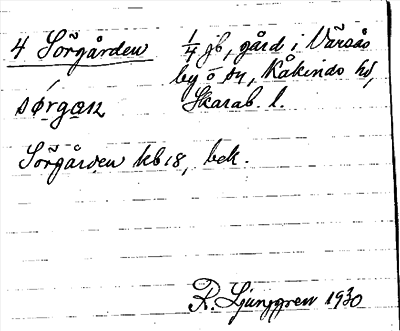 4 Sörgården 1/4 gb, gård i Värsås
by o sn, Kåkinds hd,
sǿrgaɳ Skarab. l.
Sörgården kb 18, bek.
R. Ljunggren 1930